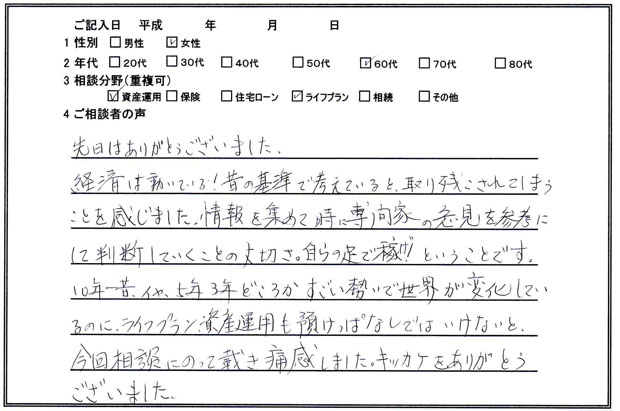 ご記入日　平成　　　年　　　月　　　日
1 性別　□男性　☑女性
2 年代　□20代　□30代　□40代　□50代　☑60代　□70代　□80代
3 相談分野(重複可)
☑資産運用　□保険　□住宅ローン　☑ライフプラン　□相続　□その他
4 ご相談者の声
先日はありがとうございました。
経済は動いている！昔の基準で考えていると、取り残こされてしまう
ことを感じました。情報を集めて時に専向家の意見を参考に
して判断していくことの大切さ。自らの足で稼げ!!ということです。
10年一昔、イヤ、5年3年どころかすごい勢いで世界が変化してい
るのに、ライフプラン、資産運用も預けっぱなしではいけないと、
今回相談にのって戴き痛感しました。キッカケをありがとう
ございました。